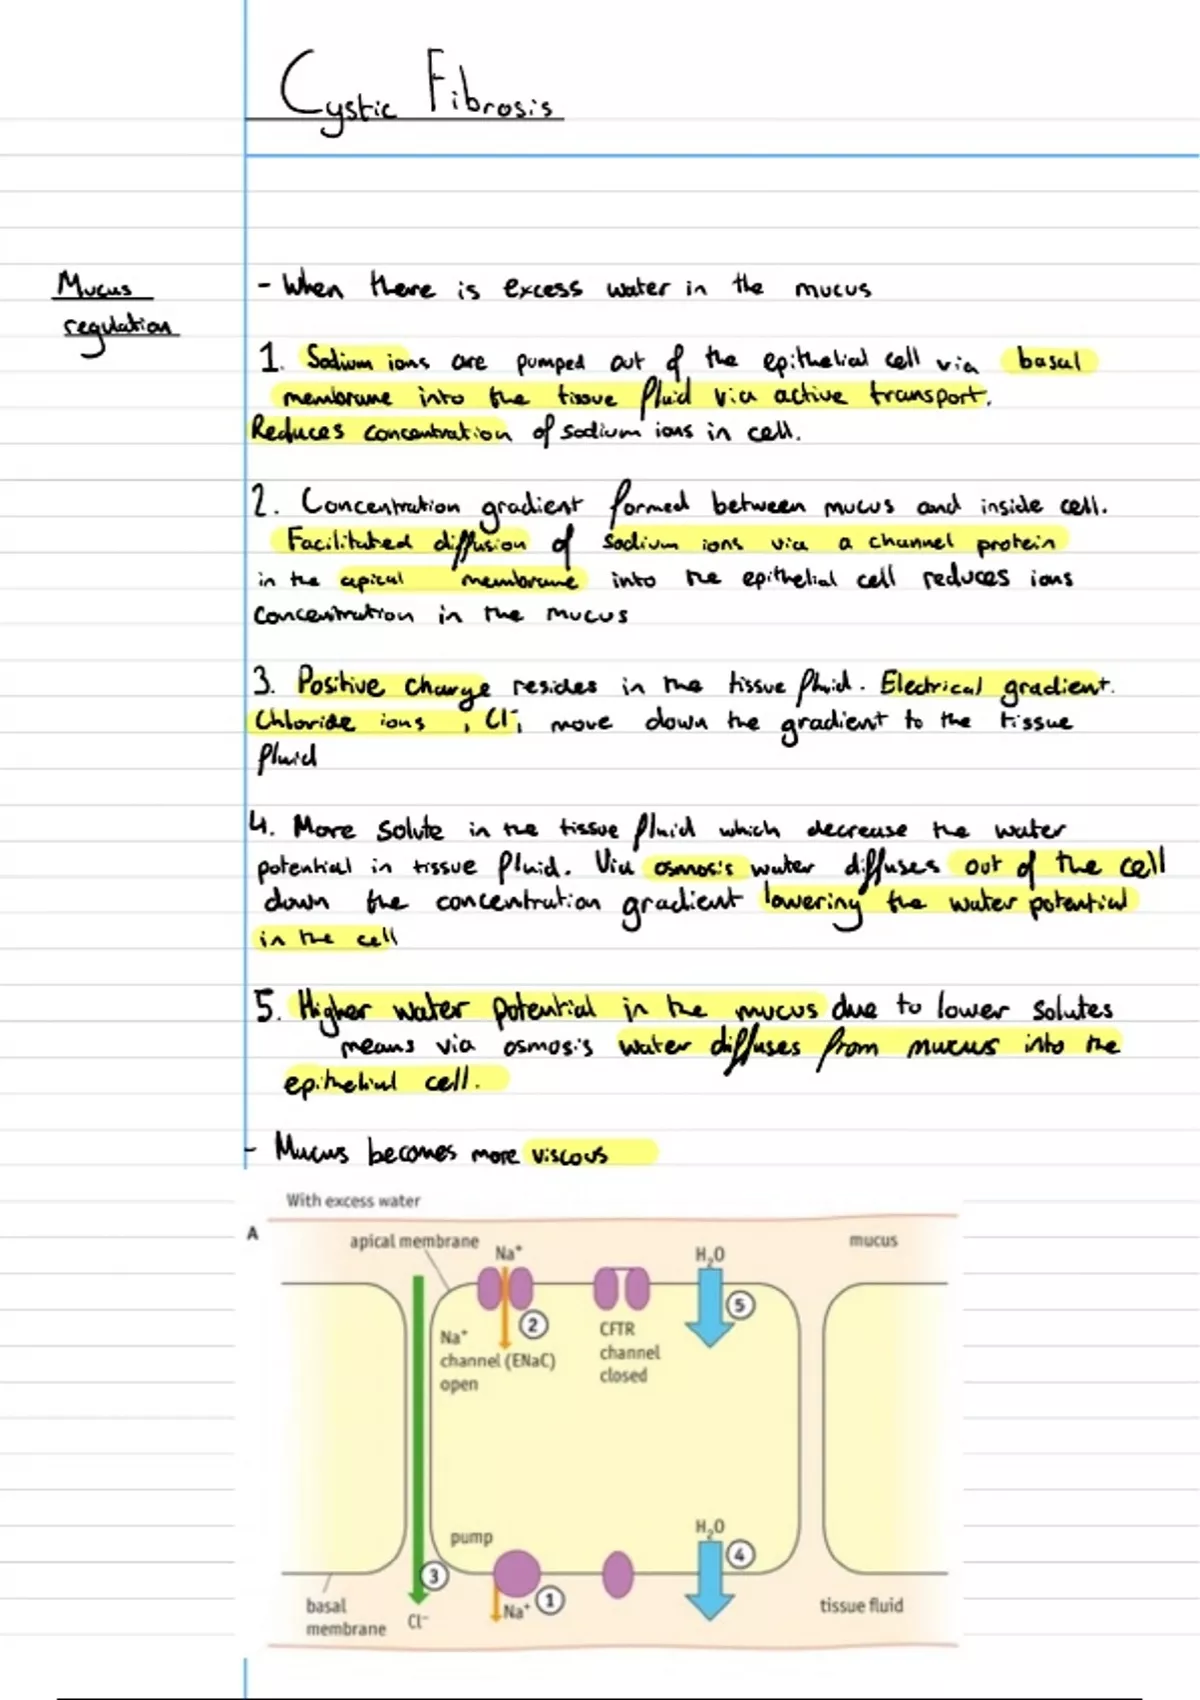 Cystic Fibrosis
Mucus
regulation
- When there is excess water in the mucus
1. Sodium ions are pumped out of the epithelial cell via basal
membrane into the tissue fluid via active transport.
Reduces concentration of sodium ions in cell.
2. Concentration gradient formed between mucus and inside cell.
Facilitated diffusion of sodium ions via a channel protein
in the apical membrane into the epithelial cell reduces ions
concentration in the mucus
3. Positive charge resides in the tissue fluid. Electrical gradient.
Chloride ions, Cl⁻, move down the gradient to the tissue
fluid
4. More solute in the tissue fluid which decrease the water
potential in tissue fluid. Via osmosis water diffuses out of the cell
down the concentration gradient lowering the water potential
in the cell
5. Higher water potential in the mucus due to lower solutes
means via osmosis water diffuses from mucus into the
epithelial cell.
- Mucus becomes more viscous
With excess water
A
apical membrane
Na⁺
H₂O
mucus
2
5
Na⁺
channel (ENaC)
open
CFTR
channel
closed
pump
H₂O
4
3
1
Na⁺
Cl⁻
basal
membrane
tissue fluid